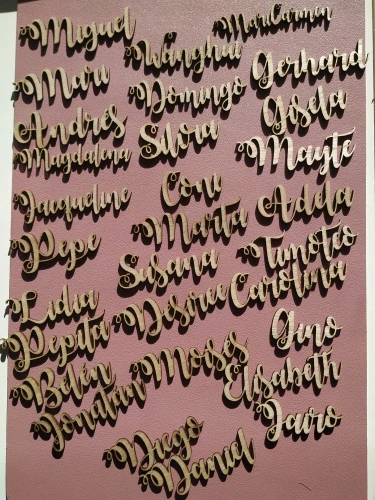 Miguel
MariCarmen
Wanghui
Gerhard
Mari
Domingo
Gisela
Andrés
Silvia
Magdalena
Mayte
Jacqueline
Conu
Adela
Marta
Pepe
Timoteo
Susana
Carolina
Lidia
Desiree
Pepita
Gino
Moises
Belén
Elisabeth
Jonatan
Jairo
Diego
Daniel